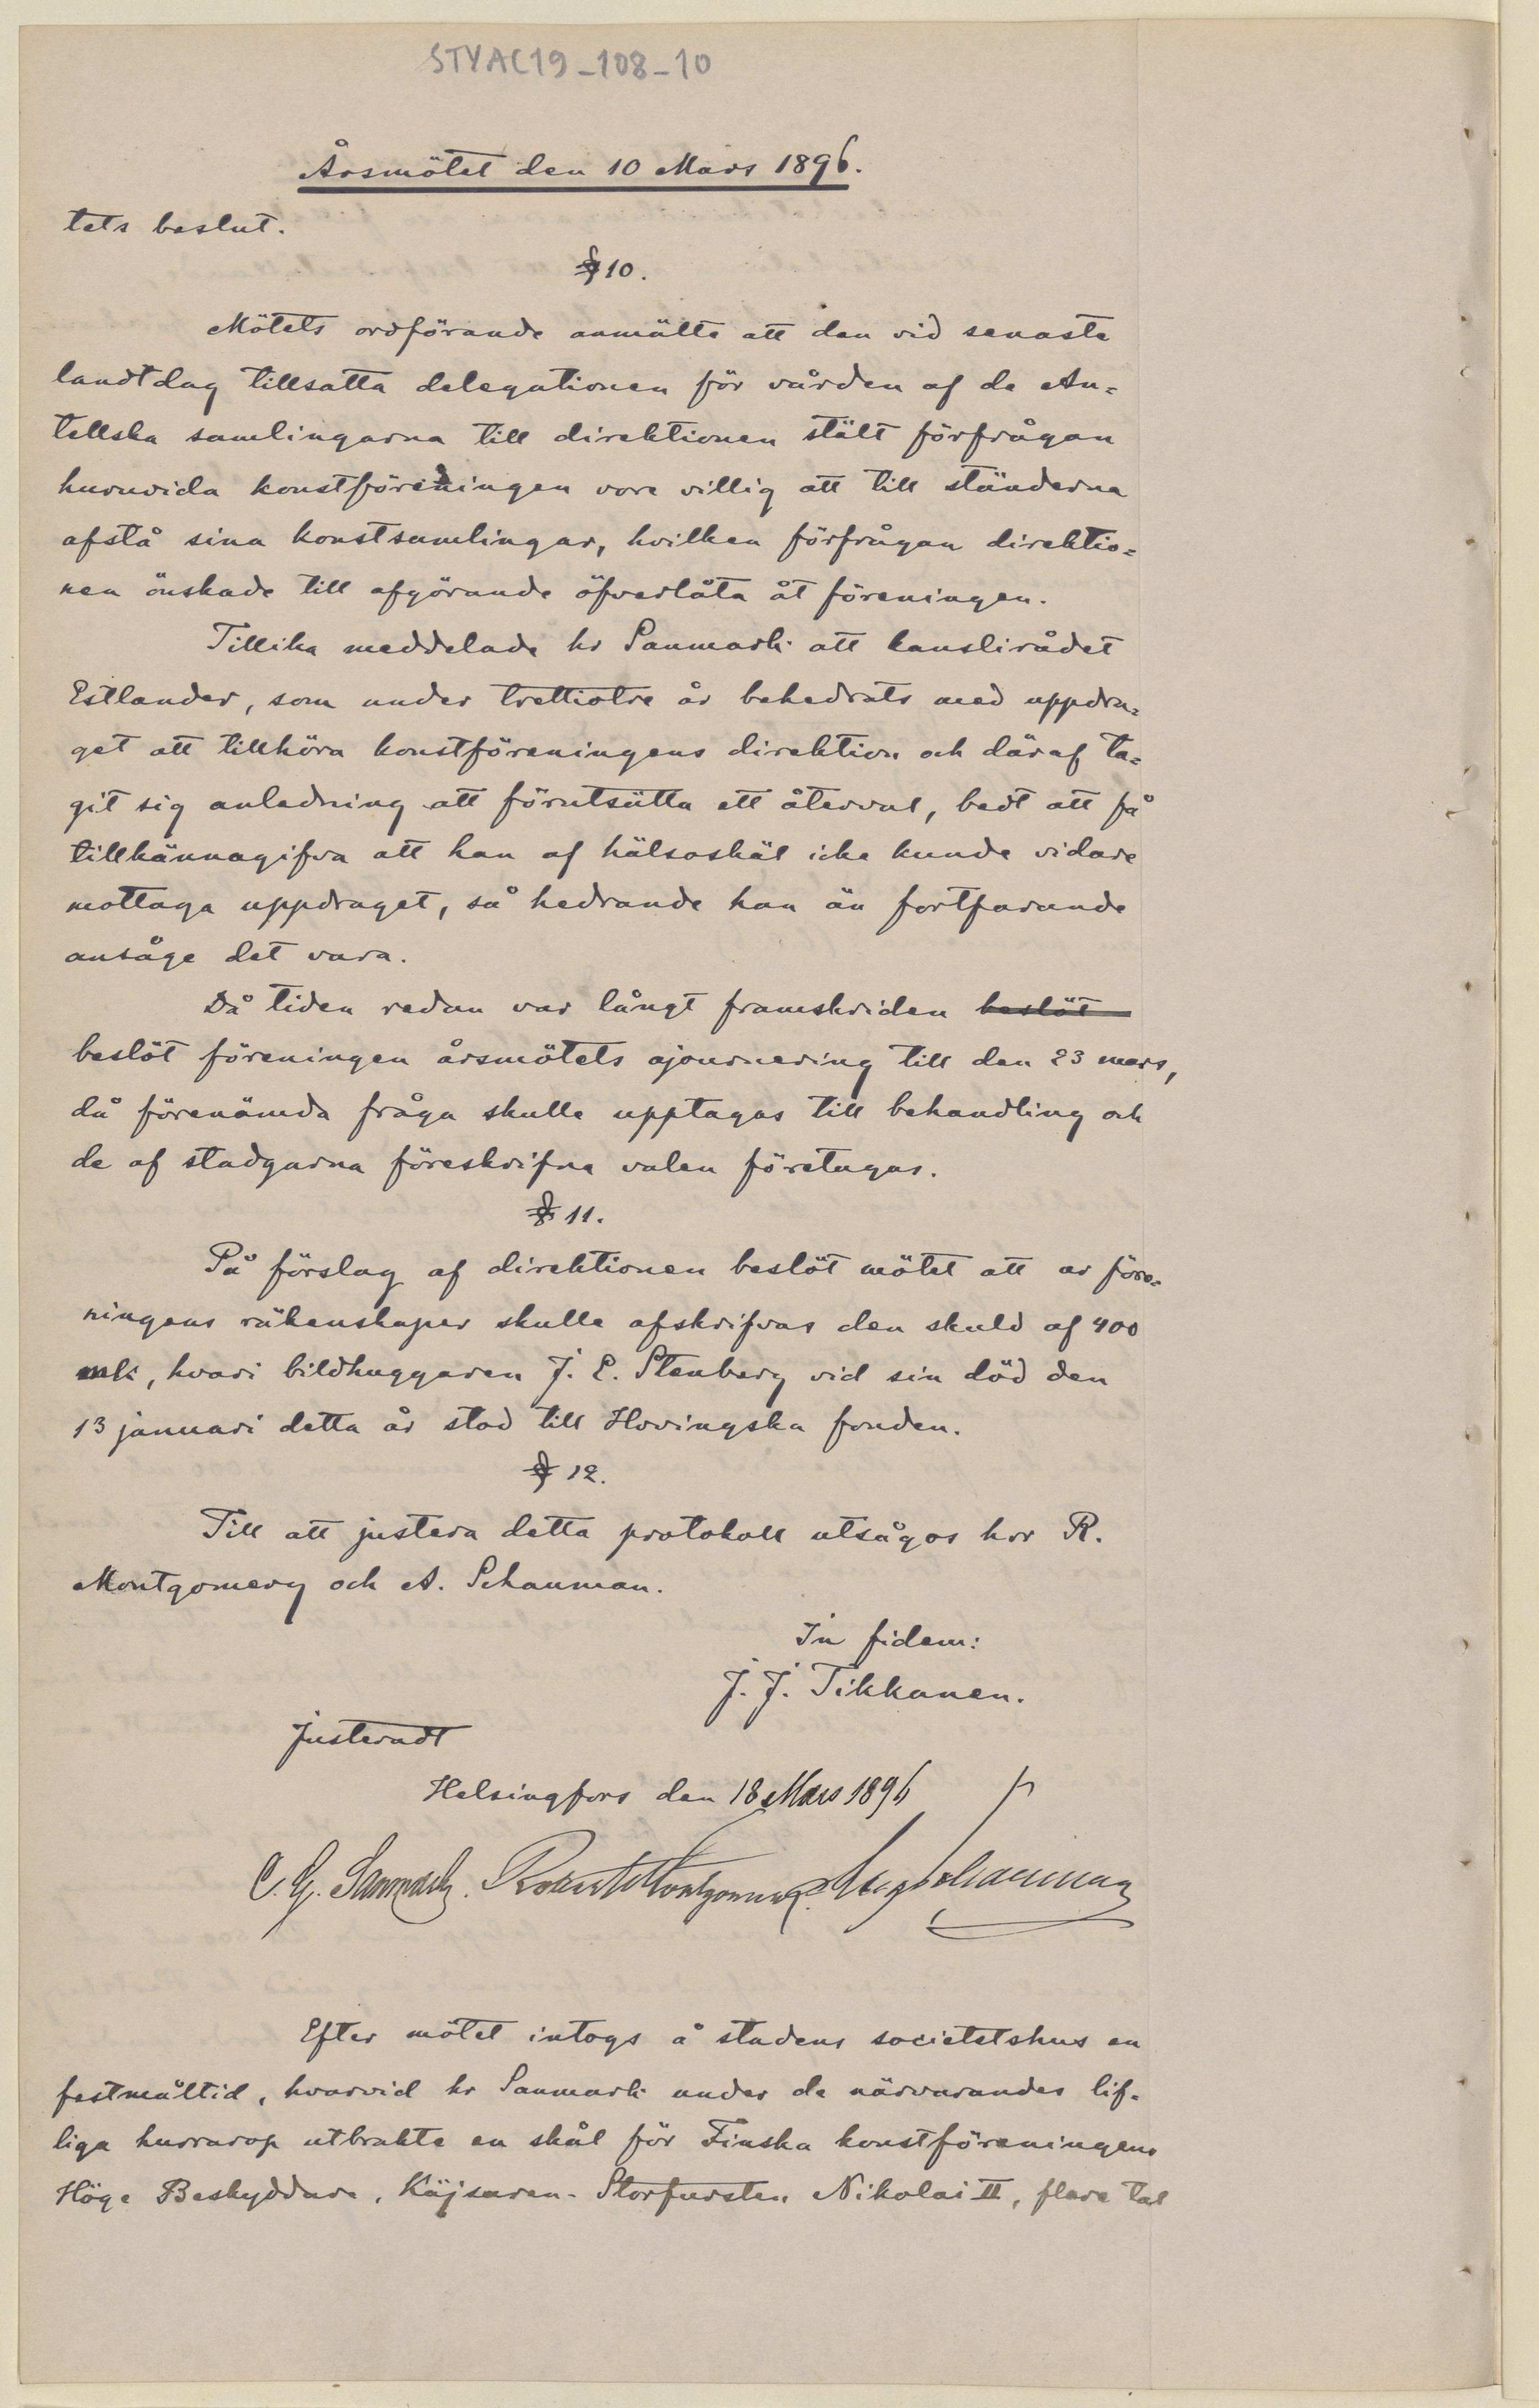 STYAC19_108_10
Årsmötet den 10 Mars 1896.
tets beslut.
§ 10.
Mötets ordförande anmälte att den vid senaste
landtdag tillsatta delegationen för vården af de An=
tellska samlingarna till direktionen stält förfrågan
huruvida konstföreningen vore villig att till ständerna
afstå sina konstsamlingar, hvilken förfrågan direktio=
nen önskade till afgörande öfverlåta åt föreningen.
Tillika meddelade hr Sanmark att kanslirådet
Estlander, som under trettiotre år behedrats med uppdra=
get att tillhöra konstföreningens direktion och däraf ta=
git sig anledning att förutsätta ett återval, bedt att få
tillkännagifva att han af hälsoskäl icke kunde vidare
mottaga uppdraget, så hedrande han än fortfarande
ansåge det vara.
Då tiden redan var långt framskriden beslöt
beslöt föreningen årsmötets ajournering till den 23 mars,
då förenämda fråga skulle upptagas till behandling och
de af stadgarna föreskrifna valen företagas.
§ 11.
På förslag af direktionen beslöt mötet att ur före=
ningens räkenskaper skulle afskrifvas den skuld af 400
mk, hvari bildhuggaren J. E. Stenberg vid sin död den
13 januari detta år stod till Hovingska fonden.
§ 12.
Till att justera detta protokoll utsågos hrr R.
Montgomery och A. Schauman.
In fidem:
J. J. Tikkanen.
Justeradt
Helsingfors den 18 Mars 1896
C. G. Sanmark. Robert Montgomery. Aug Schauman
Efter mötet intogs å stadens societetshus en
festmåltid, hvarvid hr Sanmark under de närvarandes lif=
liga hurrarop utbrakte en skål för Finska konstföreningens
Höge Beskyddare, Käjsaren-Storfursten Nikolai II, flere tal